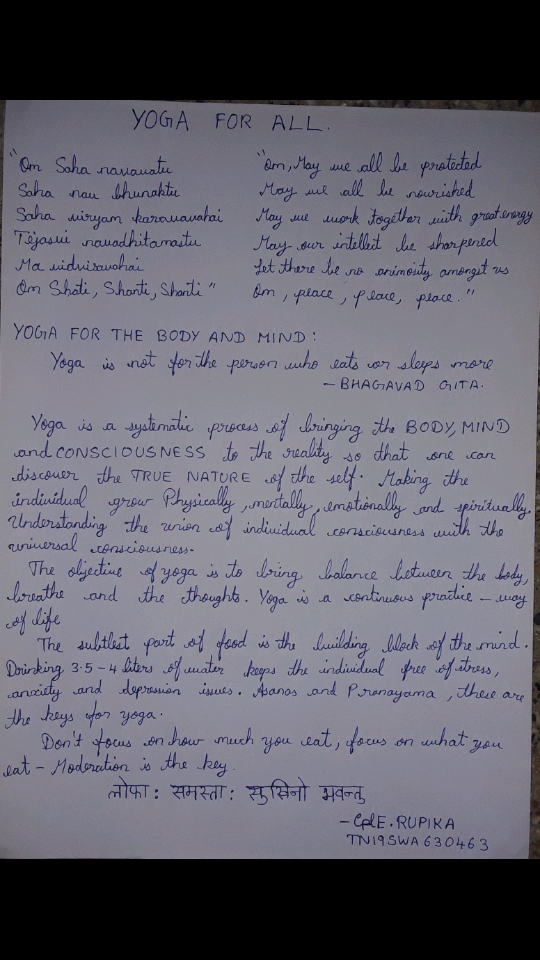 YOGA FOR ALL.
"Om Saha navavatu
Saha nau bhunaktu
Saha viryam karavavahai
Tejasvi navadhitamastu
Ma vidvisavahai
Om Shati, Shanti, Shanti"
"Om, May we all be protected
May we all be nourished
May we work together with great energy
May our intellect be sharpened
Let there be no animosity amongst us
Om, peace, peace, peace."
YOGA FOR THE BODY AND MIND:
Yoga is not for the person who eats or sleeps more
- BHAGAVAD GITA.
Yoga is a systematic process of bringing the BODY, MIND
and CONSCIOUSNESS to the reality so that one can
discover the TRUE NATURE of the self. Making the
individual grow Physically, mentally, emotionally and spiritually.
Understanding the union of individual consciousness with the
universal consciousness.
The objective of yoga is to bring balance between the body,
breathe and the thoughts. Yoga is a continuous practice - way
of life
The subtlest part of food is the building block of the mind.
Drinking 3.5 - 4 liters of water keeps the individual free of stress,
anxiety and depression issues. Asanas and Pranayama, these are
the keys for yoga.
Don't focus on how much you eat, focus on what you
eat - Moderation is the key.
लोफा: समस्ता: सुखिनो भवन्तु
- Cpl E. RUPIKA
TN19SWA630463